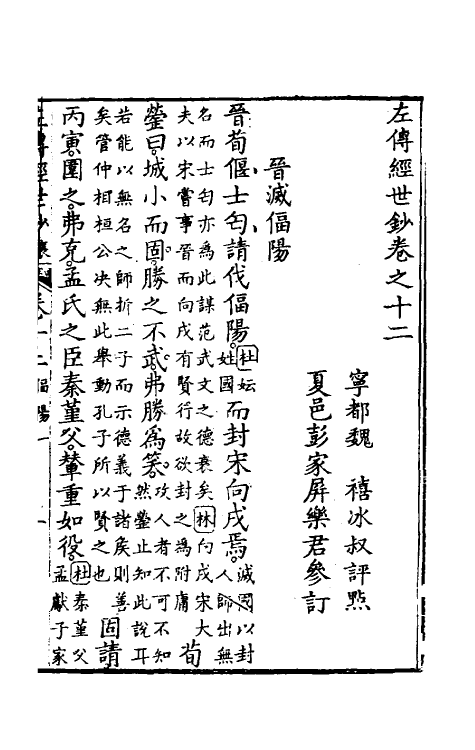 左傳經世鈔卷之十二
寧都魏 禧冰叔評㸃
夏邑彭家屏樂君參訂
晉滅偪陽
晉荀偃士匄請伐偪陽。杜妘姓國而封宋向戌焉。滅國以封人師出無
名而士匄亦為此謀范武文之德衰矣林向戌宋大
夫以宋嘗事晉而向戌有賢行故欲封之為附庸荀
罃曰。城小而固。勝之不武。弗勝為笑。攻人者不可不知然罃止知此說耳
若能以無名之師折二子而示德義于諸侯則善
矣管仲相桓公決無此舉動孔子所以賢之也固請
丙寅。圍之。弗克。孟氏之臣秦堇父。輦重如役。杜秦堇父孟獻子家